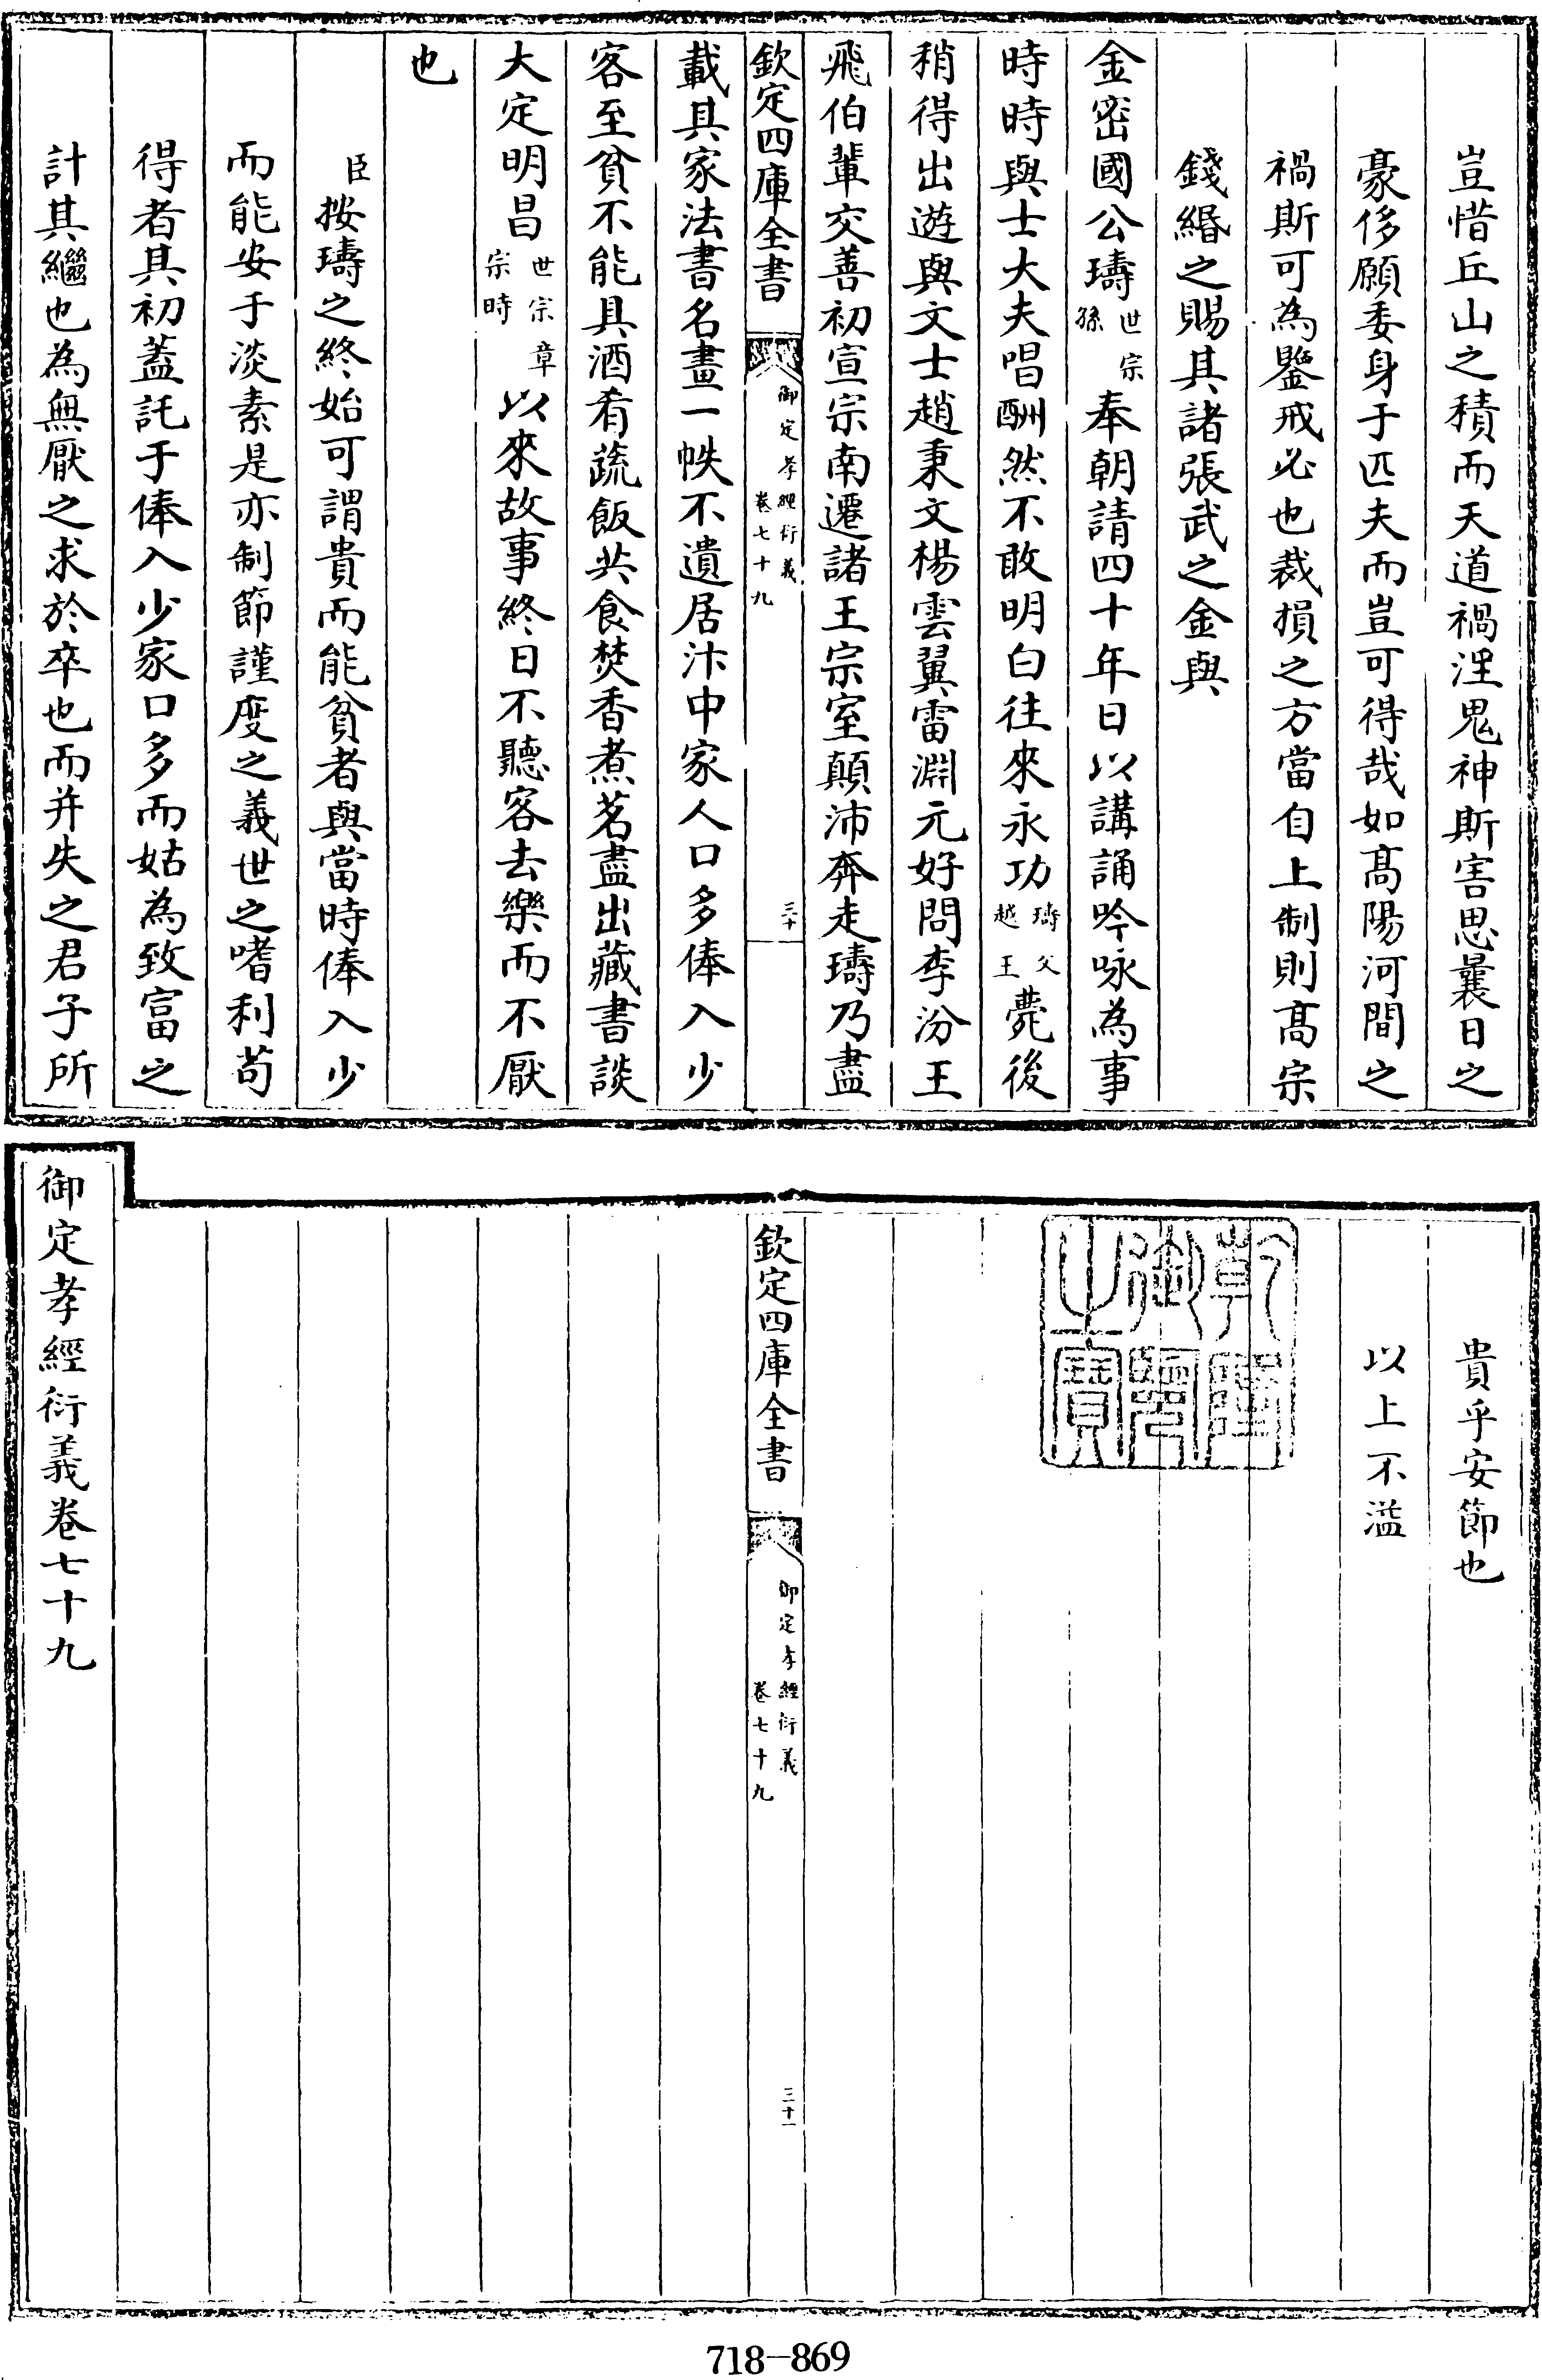 豈惜丘山之積而天道禍淫鬼神斯害思曩日之
豪侈願委身于匹夫而豈可得哉如高陽河間之
禍斯可為鑒戒必也裁損之方當自上制則高宗
錢緡之賜其諸張武之金與
金密國公璹世宗孫奉朝請四十年日以講誦吟咏為事
時時與士大夫唱酬然不敢明白往來永功璹父越王薨後
稍得出遊與文士趙秉文楊雲翼雷淵元好問李汾王
飛伯輩交善初宣宗南遷諸王宗室顛沛奔走璹乃盡
欽定四庫全書
御定孝經衍義
卷七十九
三十
載其家法書名畫一帙不遺居汴中家人口多俸入少
客至貧不能具酒肴蔬飯共食焚香煮茗盡出藏書談
大定明昌世宗章宗時以來故事終日不聽客去樂而不厭
也
臣按璹之終始可謂貴而能貧者與當時俸入少
而能安于淡素是亦制節謹度之義世之嗜利苟
得者其初蓋託于俸入少家口多而姑為致富之
計其繼也為無厭之求於卒也而并失之君子所
貴乎安節也
以上不溢
乾隆御覽之寶
欽定四庫全書
御定孝經衍義
卷七十九
三十一
御定孝經衍義卷七十九
718-869